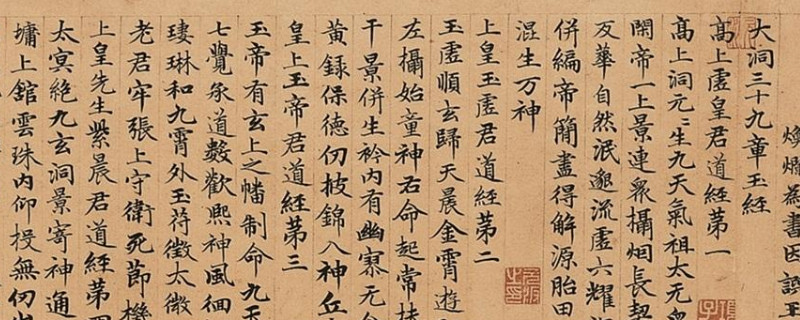 煥爛為書因誤玉
大洞三十九章玉經
高上虛皇君道經第一
高上洞元元生九天氣祖太无
閑帝一上景連眾攝烟長契
反華自然泯邈流虛六耀
併編帝簡盡得解源胎田
混生万神
上皇玉虛君道經第二
玉虛順玄歸天晨金霄遊
左攝始童神右命起常
千景併生衿內有幽寥无
黃籙保德仞披錦八神丘
皇上玉帝君道經第三
玉帝有玄上之幡制命九天
七覺眾道數歡熙神風徊
琳和九霄外玉符徵太微
老君牢張上守衛死節機
上皇先生紫晨君道經第四
太冥絕九玄洞景寄神通
墉上館雲珠內仰投無仞